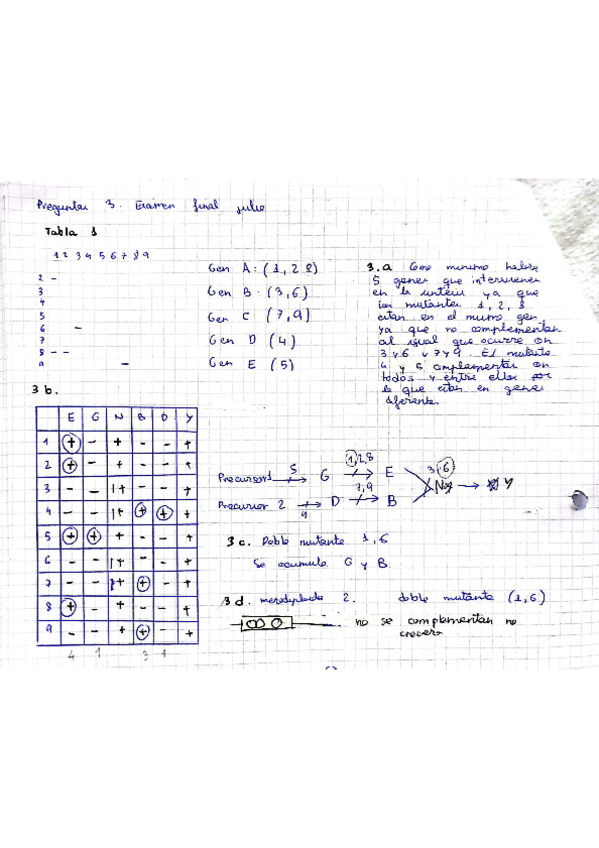 Preguntas 3. Examen final julio
Tabla 1
1 2 3 4 5 6 7 8 9
2 -
3
4
5
6 -
7
8 - -
9 -
Gen A: (1, 2 8)
Gen B: (3,6)
Gen C (7,9)
Gen D (4)
Gen E (5)
3.a Como minimo habra
5 genes que intervienen
en la sintesis ya que
los mutantes 1, 2, 8
estan en el mismo gen,
ya que no complementan
al igual que ocurre con
3 y 6 y 7 y 9. El mutante
4 y 5 complementan con
todos y entre ellos por
lo que estan en genes
diferentes
3 b.
E G N B D Y
1 + - + - - +
2 + - + - - +
3 - - + - - +
4 - - + + + +
5 + + + - - +
6 - - + - - +
7 - - + + - +
8 + - + - - +
9 - - + + - +
4 1 3 1
Precursor 1 5 G 1,2,8 E 3,6 N Y
Precursor 2 4 D 7,9 B
3 c. Doble mutante 1,6
Se acumula G y B
3 d. merodiploide 2. doble mutante (1,6)
no se complementan no
crecera